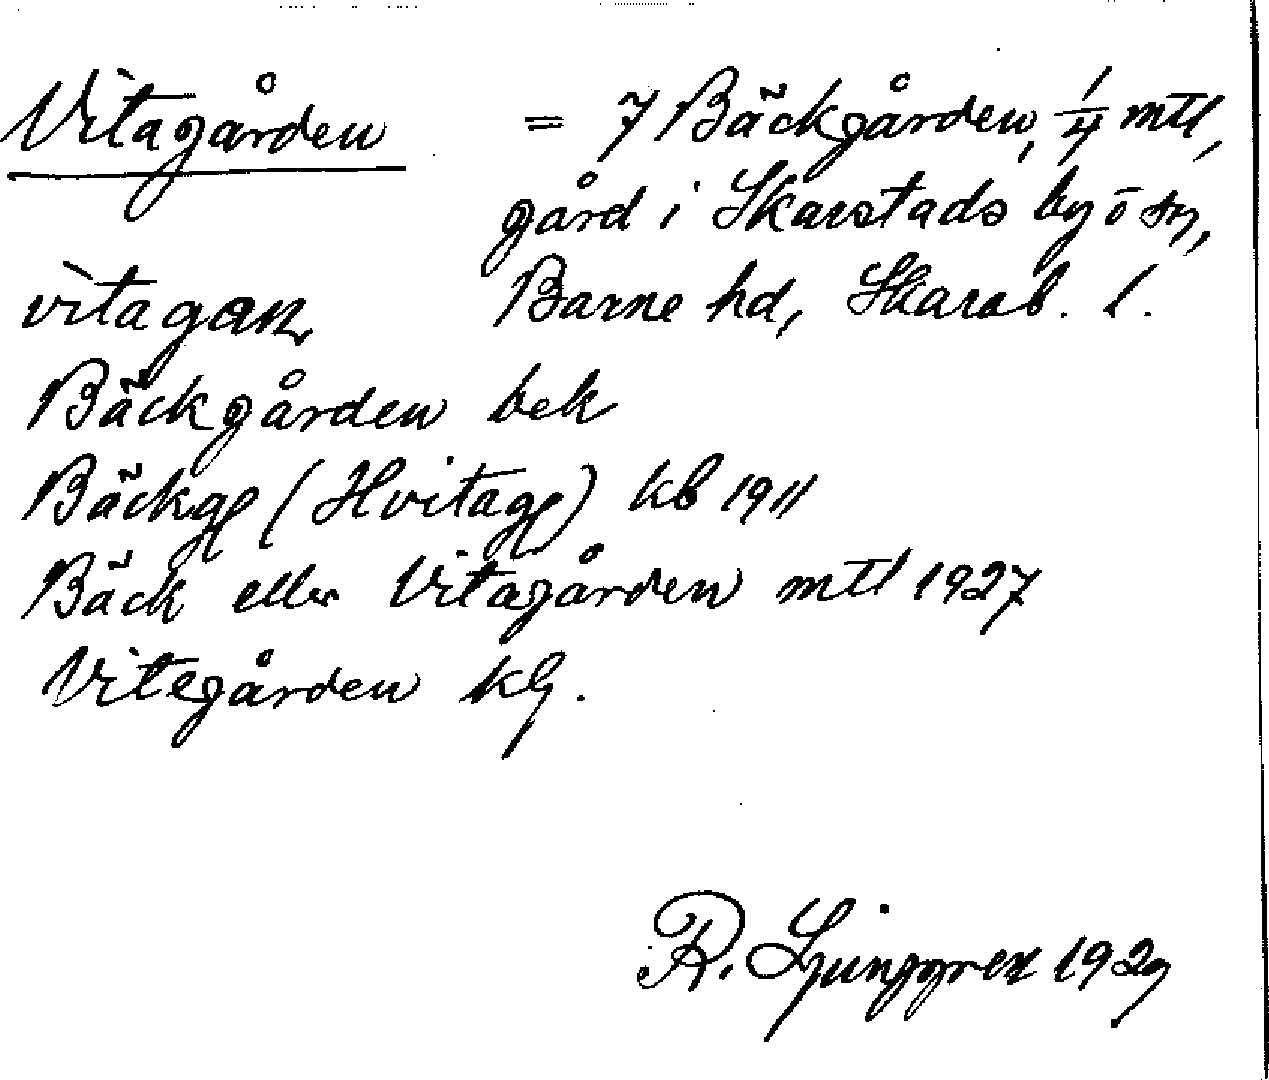 Vitagården = 7 Bäckgården, 1/4 mtl,
gård i Skarstads by o sn,
vìtagaɳ Barne hd, Skarab. l.
Bäckgården bek
Bäckg (Hvitag) kb 1911
Bäck eller Vitagården mtl 1927
Vitegården kg.
R. Ljunggren 1929